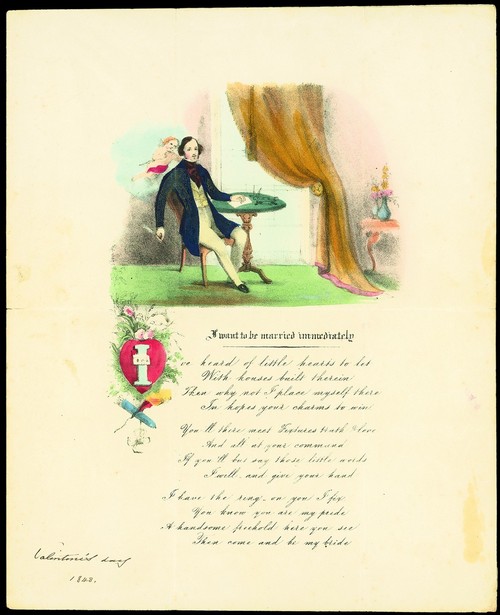 I want to be married immediately
I've heard of little hearts to let
With houses built therein
Then why not I place myself there
In hopes your charms to win
You'll there meet Fixtures truth & love
And all at your command
If you'll but say those little words
I will, and give your hand
I have the ring, on you I fix
You know you are my pride
A handsome freehold here you see
Then come and be my bride
Valentine's day